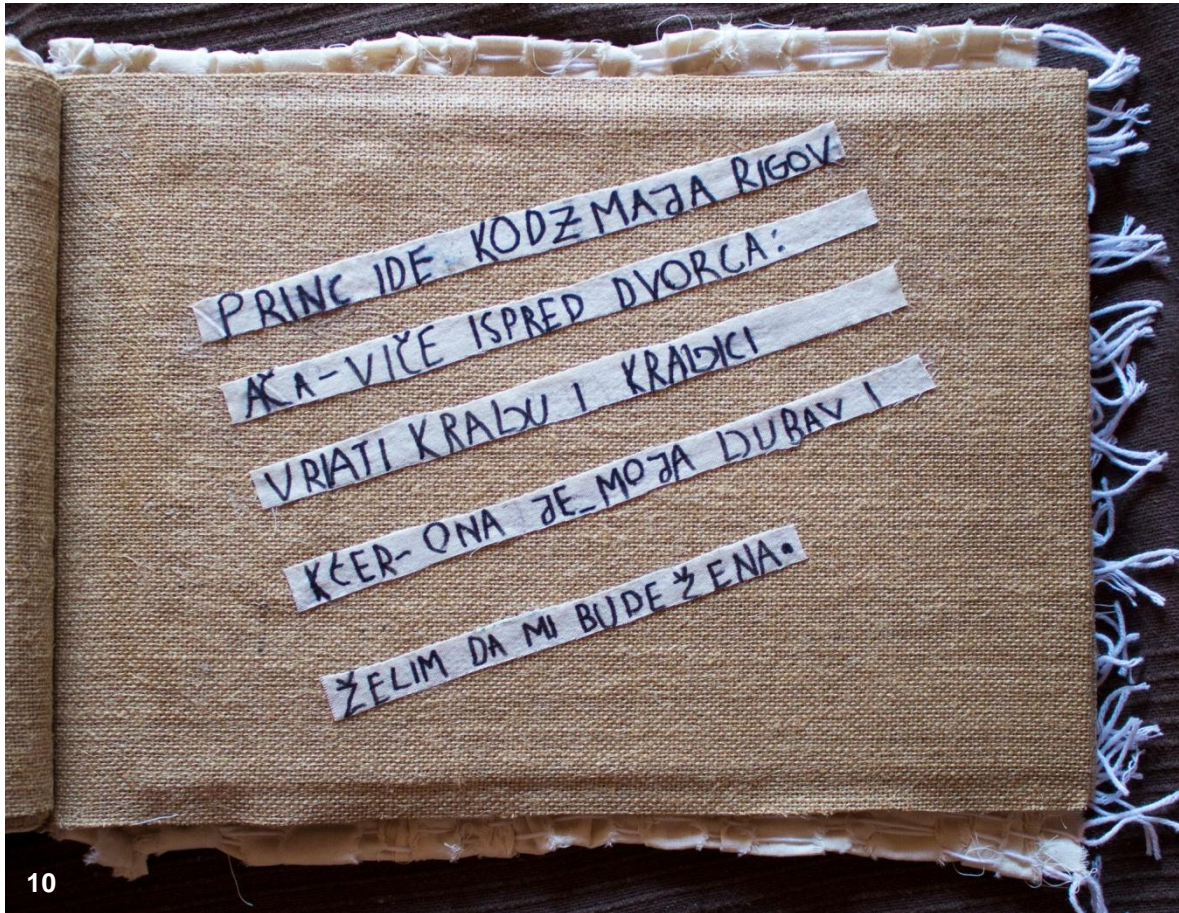 PRINC IDE KODZMAJA RIGOV
AČA-VIČE ISPRED DVORCA:
VRATI KRALJU I KRALJICI
KĆER- ONA JE_MOJA LJUBAV I
ŽELIM DA MI BUDE ŽENA.
10